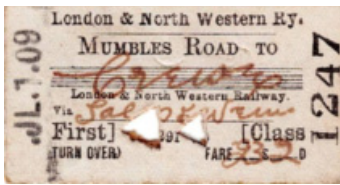 London & North Western Ry.
MUMBLES ROAD TO
Crewe
London & North Western Railway.
Via
First] [Class
TURN OVER) FARE S D
JL.1.09
1247